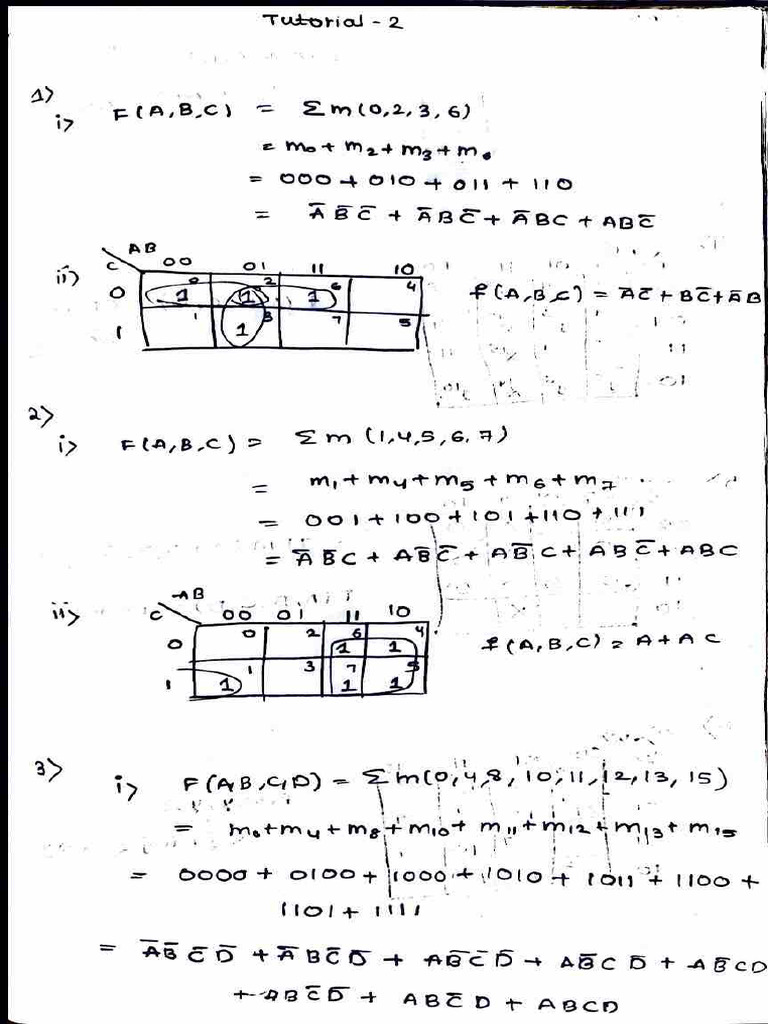 Tutorial - 2
1>
i> F(A,B,C) = Σm(0,2,3,6)
= m₀ + m₂ + m₃ + m₆
= 000 + 010 + 011 + 110
= A̅ B̅ C̅ + A̅ B C̅ + A̅ B C + A B C̅
ii) C AB 00 01 11 10
0 1 0 1 2 1 6 4
1 1 1 3 7 5
f(A,B,C) = A̅C̅ + BC̅ + A̅B
2>
i> F(A,B,C) = Σm (1,4,5,6,7)
= m₁ + m₄ + m₅ + m₆ + m₇
= 001 + 100 + 101 + 110 + 111
= A̅ B̅ C + A B̅ C̅ + A B̅ C + A B C̅ + A B C
ii> C AB 00 01 11 10
0 0 2 1 6 1 4
1 1 1 3 1 7 1 5
f(A,B,C) = A + A C
3>
i> F(A,B,C,D) = Σm(0,4,8,10,11,12,13,15)
= m₀ + m₄ + m₈ + m₁₀ + m₁₁ + m₁₂ + m₁₃ + m₁₅
= 0000 + 0100 + 1000 + 1010 + 1011 + 1100 +
1101 + 1111
= A̅ B̅ C̅ D̅ + A̅ B C̅ D̅ + A B̅ C̅ D̅ + A B̅ C D̅ + A B̅ C D
+ A B C̅ D̅ + A B C̅ D + A B C D